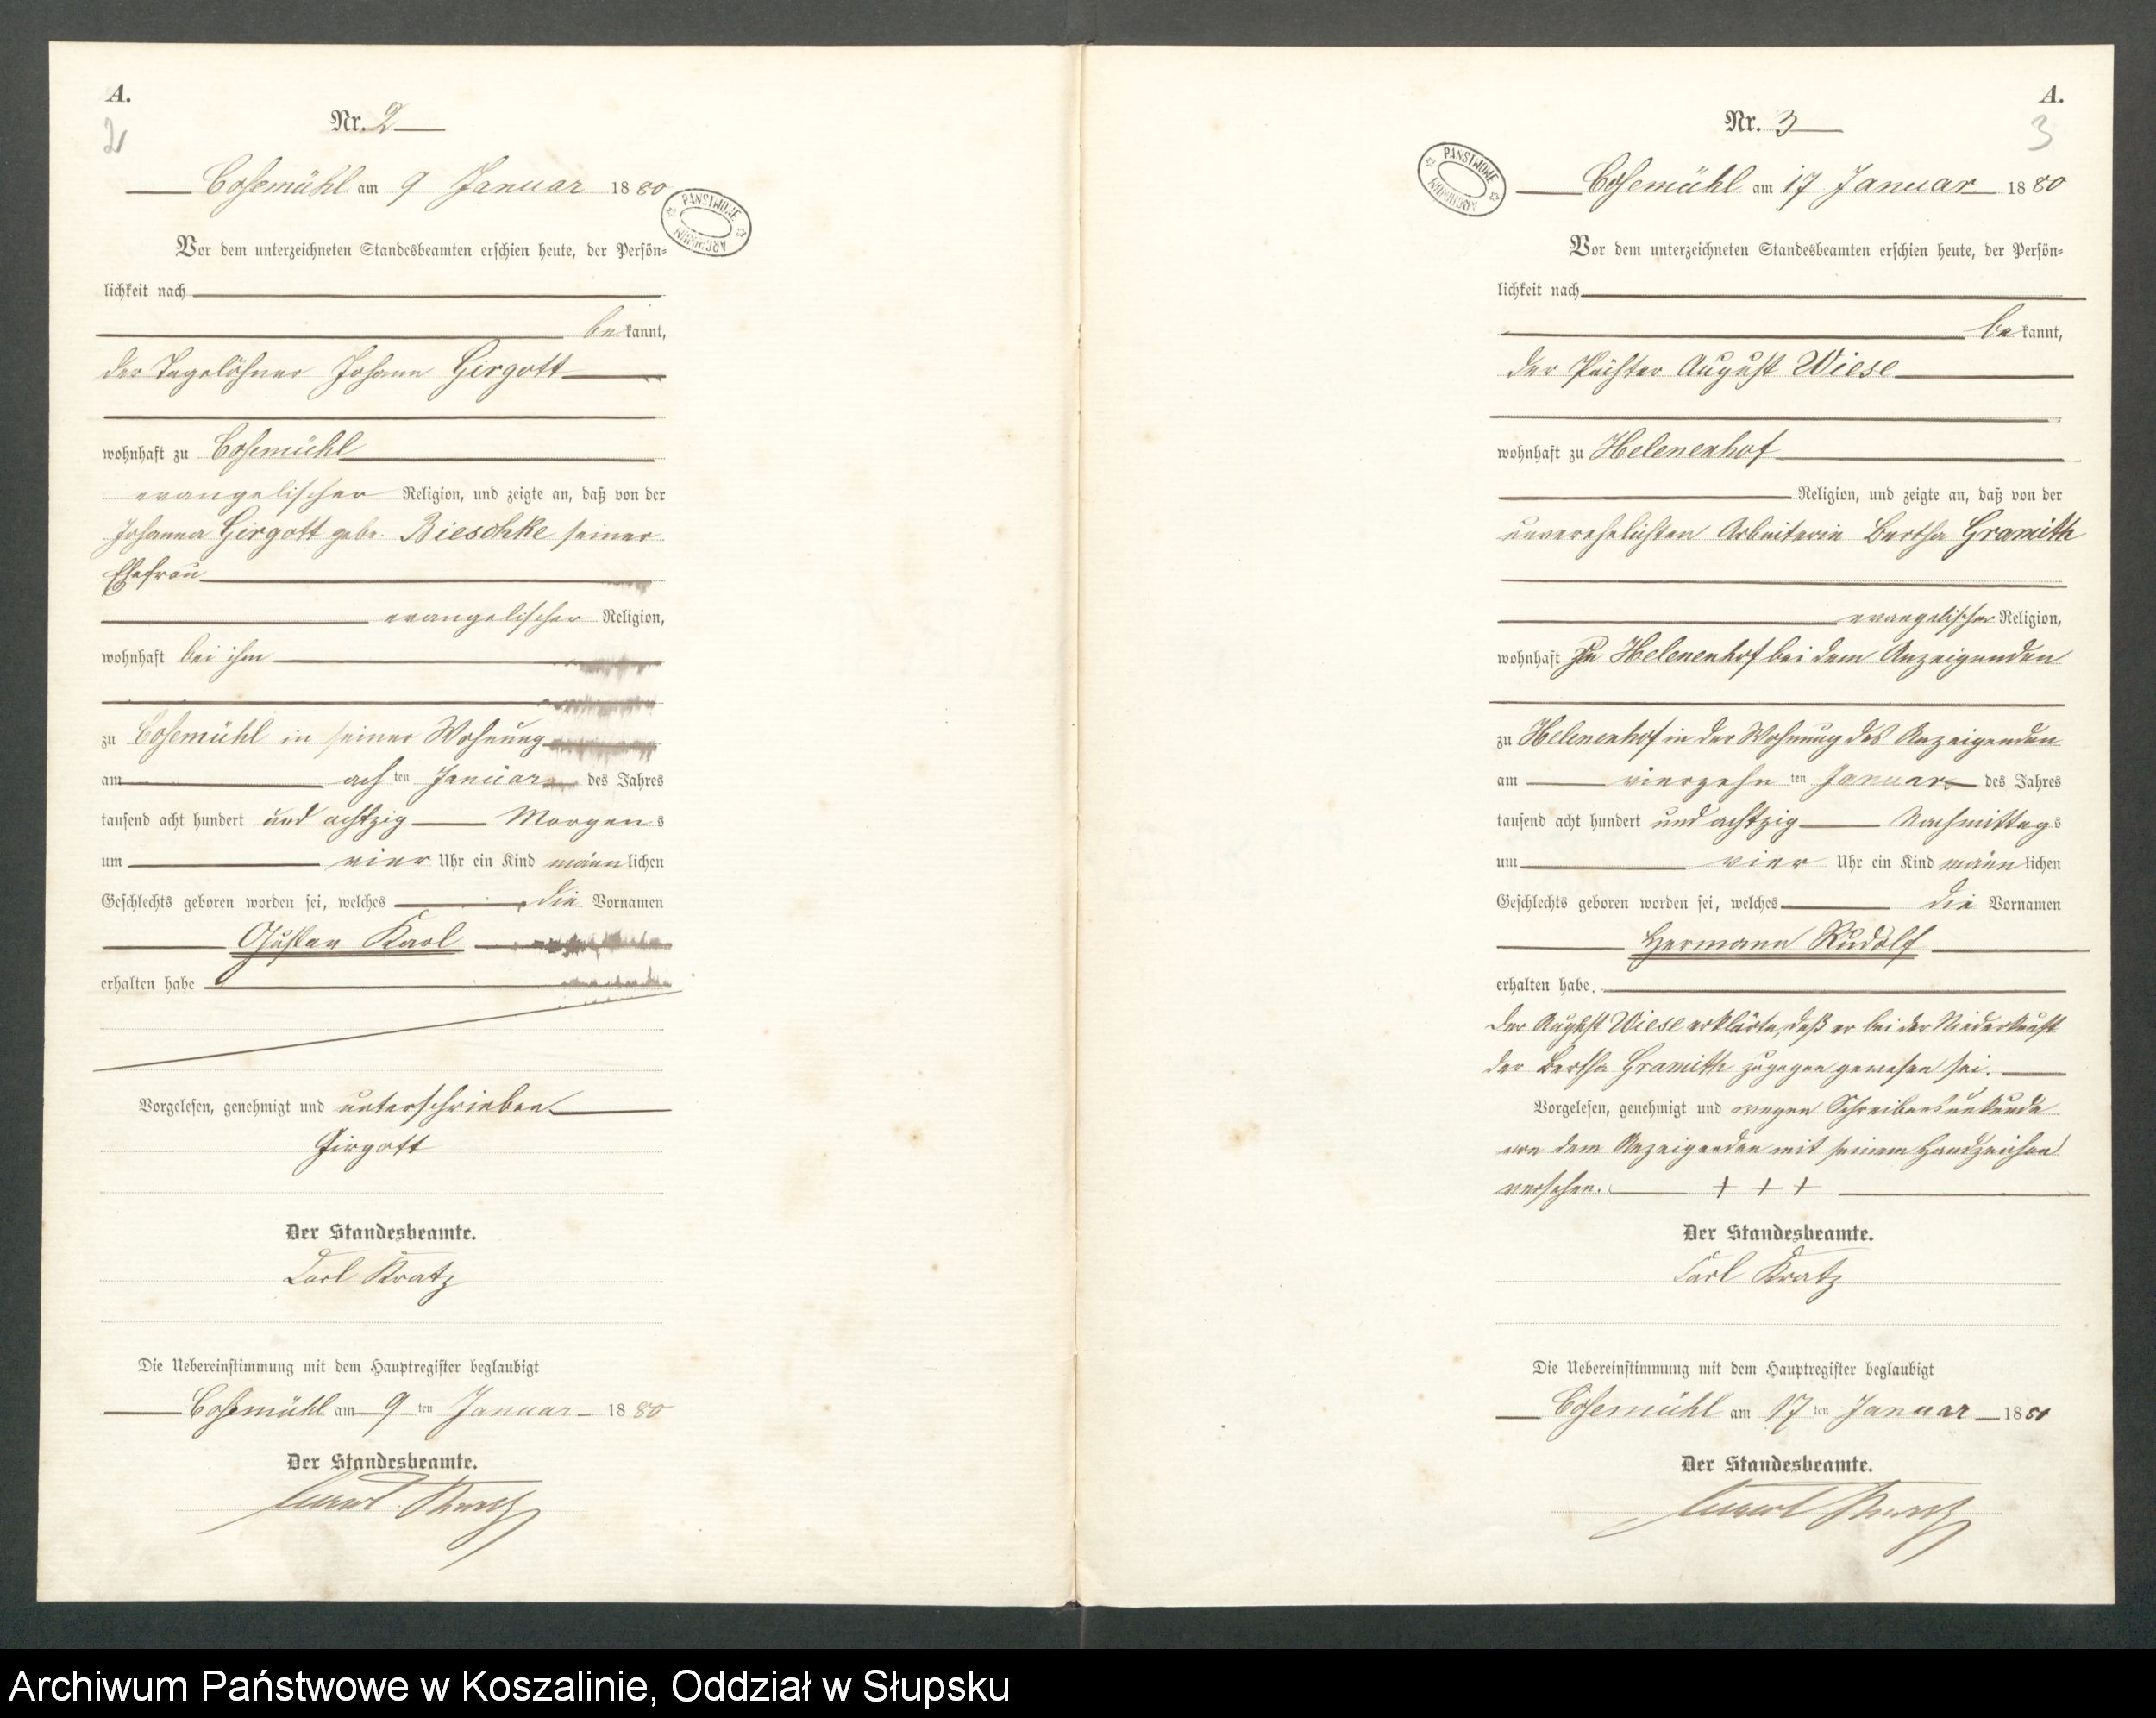 A.
2
Nr. 2
Cosemühl am 9 Januar 1880
PAŃSTWOWE ARCHIWUM
Vor dem unterzeichneten Standesbeamten erschien heute, der Persön-
lichkeit nach
bekannt,
der Tagelöhner Johann Girgott
wohnhaft zu Cosemühl
evangelischer Religion, und zeigte an, daß von der
Johanna Girgott gebr. Bieschke seiner
Ehefrau
evangelischer Religion,
wohnhaft bei ihm
zu Cosemühl in seiner Wohnung
am achten Januar des Jahres
tausend acht hundert und achtzig Morgens
um vier Uhr ein Kind männlichen
Geschlechts geboren worden sei, welches die Vornamen
Gustav Karl
erhalten habe
Vorgelesen, genehmigt und unterschrieben
Girgott
Der Standesbeamte.
Carl Kratz
Die Uebereinstimmung mit dem Hauptregister beglaubigt
Cosemühl am 9ten Januar 1880
Der Standesbeamte.
A.
3
Nr. 3
PAŃSTWOWE ARCHIWUM
Cosemühl am 17 Januar 1880
Vor dem unterzeichneten Standesbeamten erschien heute, der Persön-
lichkeit nach
bekannt,
der Pächter August Wiese
wohnhaft zu Helenenhof
Religion, und zeigte an, daß von der
unverehelichten Arbeiterin Bertha Gramith
evangelischer Religion,
wohnhaft zu Helenenhof bei dem Anzeigenden
zu Helenenhof in der Wohnung des Anzeigenden
am vierzehnten Januar des Jahres
tausend acht hundert und achtzig Nachmittags
um vier Uhr ein Kind männlichen
Geschlechts geboren worden sei, welches die Vornamen
Hermann Rudolf
erhalten habe.
Der August Wiese erklärte, daß er bei der Niederkunft
der Bertha Gramith zugegen gewesen sei.
Vorgelesen, genehmigt und wegen Schreibensunkunde
von dem Anzeigenden mit seinem Handzeichen
versehen. + + +
Der Standesbeamte.
Carl Kratz
Die Uebereinstimmung mit dem Hauptregister beglaubigt
Cosemühl am 17ten Januar 1880
Der Standesbeamte.
Archiwum Państwowe w Koszalinie, Oddział w Słupsku